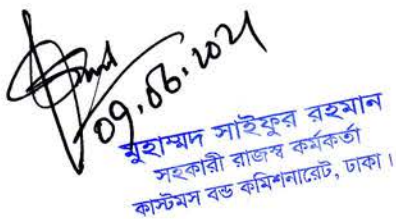 09.06.2021
মুহাম্মদ সাইফুর রহমান
সহকারী রাজস্ব কর্মকর্তা
কাস্টমস বন্ড কমিশনারেট, ঢাকা।